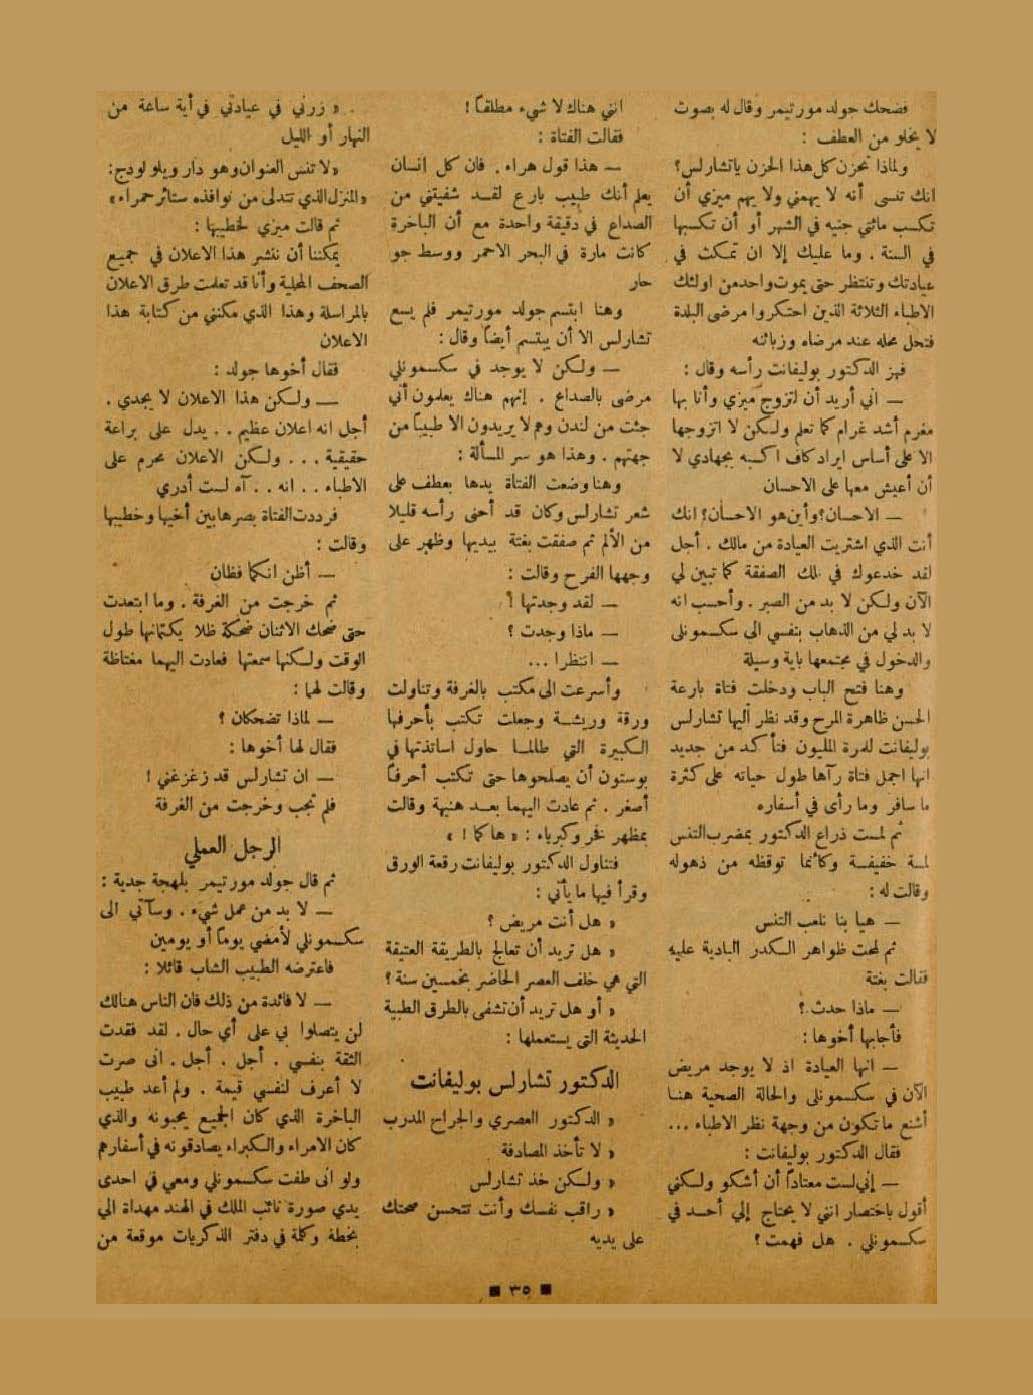 فضحك جولد مورتيمر وقال له بصوت
لا يخلو من العطف :
ولماذا تحزن كل هذا الحزن ياتشارلس؟
انك تنسى أنه لا يهمني ولا يهم ميزي أن
تكسب مائتي جنيه في الشهر أو أن تكسبها
في السنة . وما عليك إلا ان تمكث في
عيادتك وتنتظر حتى يموت واحد من اولئك
الاطباء الثلاثة الذين احتكروا مرضى البلدة
فتحل محله عند مرضاه وزبائنه
فهز الدكتور بوليفانت رأسه وقال :
— اني أريد أن اتزوج ميزي وأنا بها
مغرم أشد غرام كما تعلم ولكن لا اتزوجها
الا على أساس ايراد كاف اكسبه بجهادي لا
أن أعيش معها على الاحسان
— الاحسان؟ وأين هو الاحسان؟ انك
أنت الذي اشتريت العيادة من مالك . أجل
لقد خدعوك في تلك الصفقة كما تبين لي
الآن ولكن لا بد من الصبر . وأحسب انه
لا بد لي من الذهاب بنفسي الى سكسمونلى
والدخول في مجتمعها باية وسيلة
وهنا فتح الباب ودخلت فتاة بارعة
الحسن ظاهرة المرح وقد نظر اليها تشارلس
بوليفانت للمرة المليون فتأكد من جديد
انها اجمل فتاة رآها طول حياته على كثرة
ما سافر وما رأى في أسفاره
ثم لمست ذراع الدكتور بمضرب التنس
لمسة خفيفة وكانما توقظه من ذهوله
وقالت له :
— هيا بنا نلعب التنس
ثم لمحت ظواهر الكدر البادية عليه
فقالت بغتة
— ماذا حدث ؟
فأجابها أخوها :
— انها العيادة اذ لا يوجد مريض
الآن في سكسمونلى والحالة الصحية هنا
أشنع ما تكون من وجهة نظر الاطباء ...
فقال الدكتور بوليفانت :
— إني لست معتاداً أن أشكو ولكني
أقول باختصار انني لا يحتاج إلي أحد في
سكسمونلي . هل فهمت ؟
انني هناك لا شيء مطلقاً !
فقالت الفتاة :
— هذا قول هراء . فان كل إنسان
يعلم أنك طبيب بارع لقد شفيتني من
الصداع في دقيقة واحدة مع أن الباخرة
كانت مارة في البحر الاحمر ووسط جو
حار
وهنا ابتسم جولد مورتيمر فلم يسع
تشارلس الا أن يبتسم أيضاً وقال :
— ولكن لا يوجد في سكسمونلي
مرضى بالصداع . إنهم هناك يعلمون أني
جئت من لندن وهم لا يريدون الا طبيباً من
جهتهم . وهذا هو سر المسألة :
وهنا وضعت الفتاة يدها بعطف على
شعر تشارلس وكان قد أحنى رأسه قليلا
من الألم ثم صفقت بغتة بيديها وظهر على
وجهها الفرح وقالت :
— لقد وجدتها !
— ماذا وجدت ؟
— انتظرا ...
وأسرعت الى مكتب بالغرفة وتناولت
ورقة وريشة وجعلت تكتب بأحرفها
الكبيرة التي طالما حاول اساتذتها في
بوستون أن يصلحوها حتى تكتب أحرفاً
أصغر . ثم عادت اليهما بعد هنيهة وقالت
بمظهر فخر وكبرياء : « هاكما ! »
فتناول الدكتور بوليفانت رقعة الورق
وقرأ فيها ما يأتي :
« هل أنت مريض ؟
« هل تريد أن تعالج بالطريقة العتيقة
التي هي خلف العصر الحاضر بخمسين سنة ؟
« أو هل تريد أن تشفى بالطرق الطبية
الحديثة التي يستعملها :
الدكتور تشارلس بوليفانت
« الدكتور العصري والجراح المدرب
« لا تأخذ المصادفة
« ولكن خذ تشارلس
« راقب نفسك وأنت تتحسن صحتك
على يديه
« زرني في عيادتي في أية ساعة من
النهار أو الليل
« لا تنس العنوان وهو دار ويلو لودج :
« المنزل الذي تتدلى من نوافذه ستائر حمراء »
ثم قالت ميزي لخطيبها :
يمكننا أن ننشر هذا الاعلان في جميع
الصحف المحلية وأنا قد تعلمت طرق الاعلان
بالمراسلة وهذا الذي مكنني من كتابة هذا
الاعلان
فقال أخوها جولد :
— ولكن هذا الاعلان لا يجدي .
أجل انه اعلان عظيم . . يدل على براعة
حقيقية ... ولكن الاعلان محرم على
الاطباء . . انه . . آه لست أدري
فرددت الفتاة بصرها بين أخيها وخطيبها
وقالت :
— أظن انكما فظان
ثم خرجت من الغرفة . وما ابتعدت
حتى ضحك الاثنان ضحكة ظلا يكتمانها طول
الوقت ولكنها سمعتها فعادت اليهما مغتاظة
وقالت لهما :
— لماذا تضحكان ؟
فقال لها أخوها :
— ان تشارلس قد زغزغني !
فلم تجب وخرجت من الغرفة
الرجل العملي
ثم قال جولد مورتيمر بلهجة جدية :
— لا بد من عمل شيء . وسآتي الى
سكسمونلي لأمضي يوماً أو يومين
فاعترضه الطبيب الشاب قائلا :
— لا فائدة من ذلك فان الناس هنالك
لن يتصلوا بي على أي حال . لقد فقدت
الثقة بنفسي . أجل . أجل . انى صرت
لا أعرف لنفسي قيمة . ولم أعد طبيب
الباخرة الذي كان الجميع يحبونه والذي
كان الامراء والكبراء يصادقونه في أسفارهم
ولو انى طفت سكسمونلي ومعي في احدى
يدي صورة نائب الملك في الهند مهداة الي
بخطه وكلمة في دفتر الذكريات موقعة من
٣٥